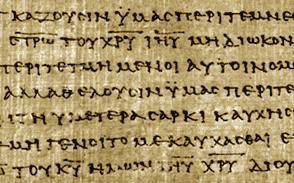 ΓΚΑΖΟΥϹΙΝ ΫΜΑϹ ΠΕΡΙΤΕΜΝΕϹ
Ϲ̅Τ̅Ρ̅Ω̅ ΤΟΥ Χ̅Ρ̅Υ̅ Ι̅Η̅Υ̅ ΜΗ ΔΙΩΚΟΝ
ΠΕΡΙΤΕΤΜΗΜΕΝΟΙ ΑΥΤΟΙ ΝΟΜ
ΑΛΛΑ ΘΕΛΟΥϹΙΝ ΫΜΑϹ ΠΕΡΙΤΕ
ΤΗ ΫΜΕΤΕΡΑ ϹΑΡΚΙ ΚΑΥΧΗϹ
ΜΗ ΓΕΝΟΙΤΟ ΜΕ ΚΑΥΧΑϹΘΑΙ Ε
ΤΟΥ Κ̅Υ̅ ΗΜΩΝ Ι̅Η̅Υ̅ Χ̅Ρ̅Υ̅ ΔΙ ΟΥ